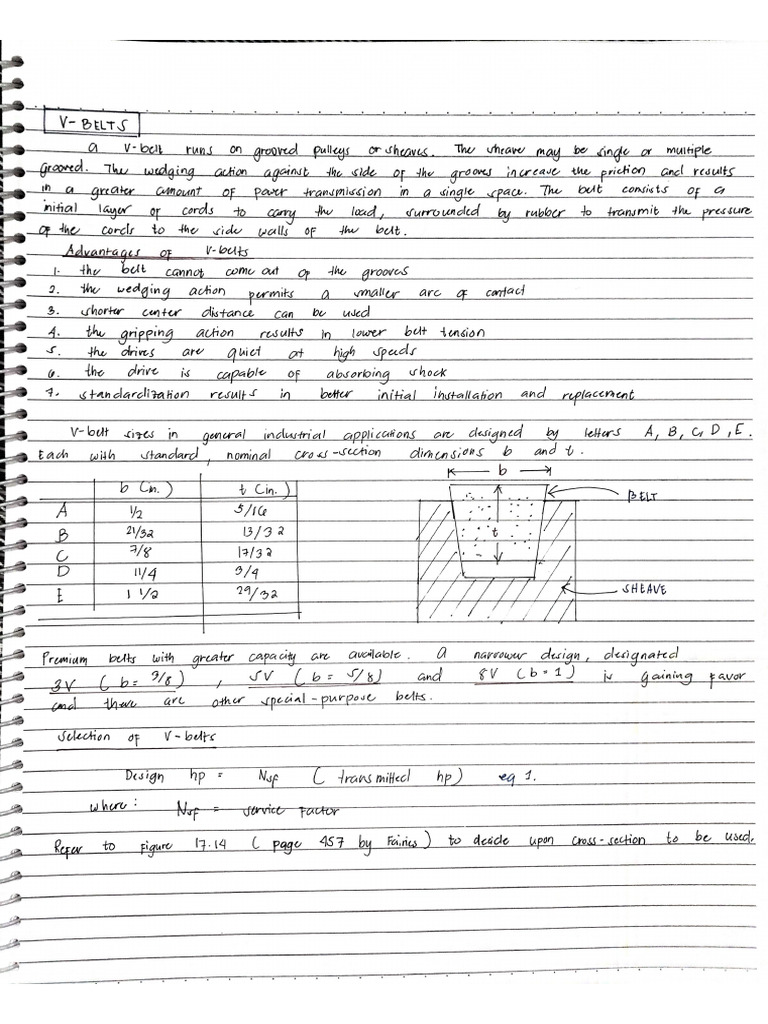 V-BELTS
a V-belt runs on grooved pulleys or sheaves. The sheave may be single or multiple
grooved. The wedging action against the side of the grooves increase the friction and results
in a greater amount of power transmission in a single space. The belt consists of a
initial layer of cords to carry the load, surrounded by rubber to transmit the pressure
of the cords to the side walls of the belt.
Advantages of V-belts
1. the belt cannot come out of the grooves
2. the wedging action permits a smaller arc of contact
3. shorter center distance can be used
4. the gripping action results in lower belt tension
5. the drives are quiet at high speeds
6. the drive is capable of absorbing shock
7. standardization results in better initial installation and replacement
V-belt sizes in general industrial applications are designed by letters A, B, C, D, E.
Each with standard, nominal cross-section dimensions b and t.
b (in.) t (in.)
A 1/2 5/16
B 21/32 13/32
C 7/8 17/32
D 11/4 3/4
E 1 1/2 29/32
b
BELT
t
SHEAVE
Premium belts with greater capacity are available. A narrower design, designated
3V (b= 3/8), 5V (b= 5/8) and 8V (b=1) is gaining favor
and there are other special-purpose belts.
Selection of V-belts
Design hp = Nsf (transmitted hp) eq 1.
where: Nsf = service factor
Refer to Figure 17.14 (page 457 by Faires) to decide upon cross-section to be used.